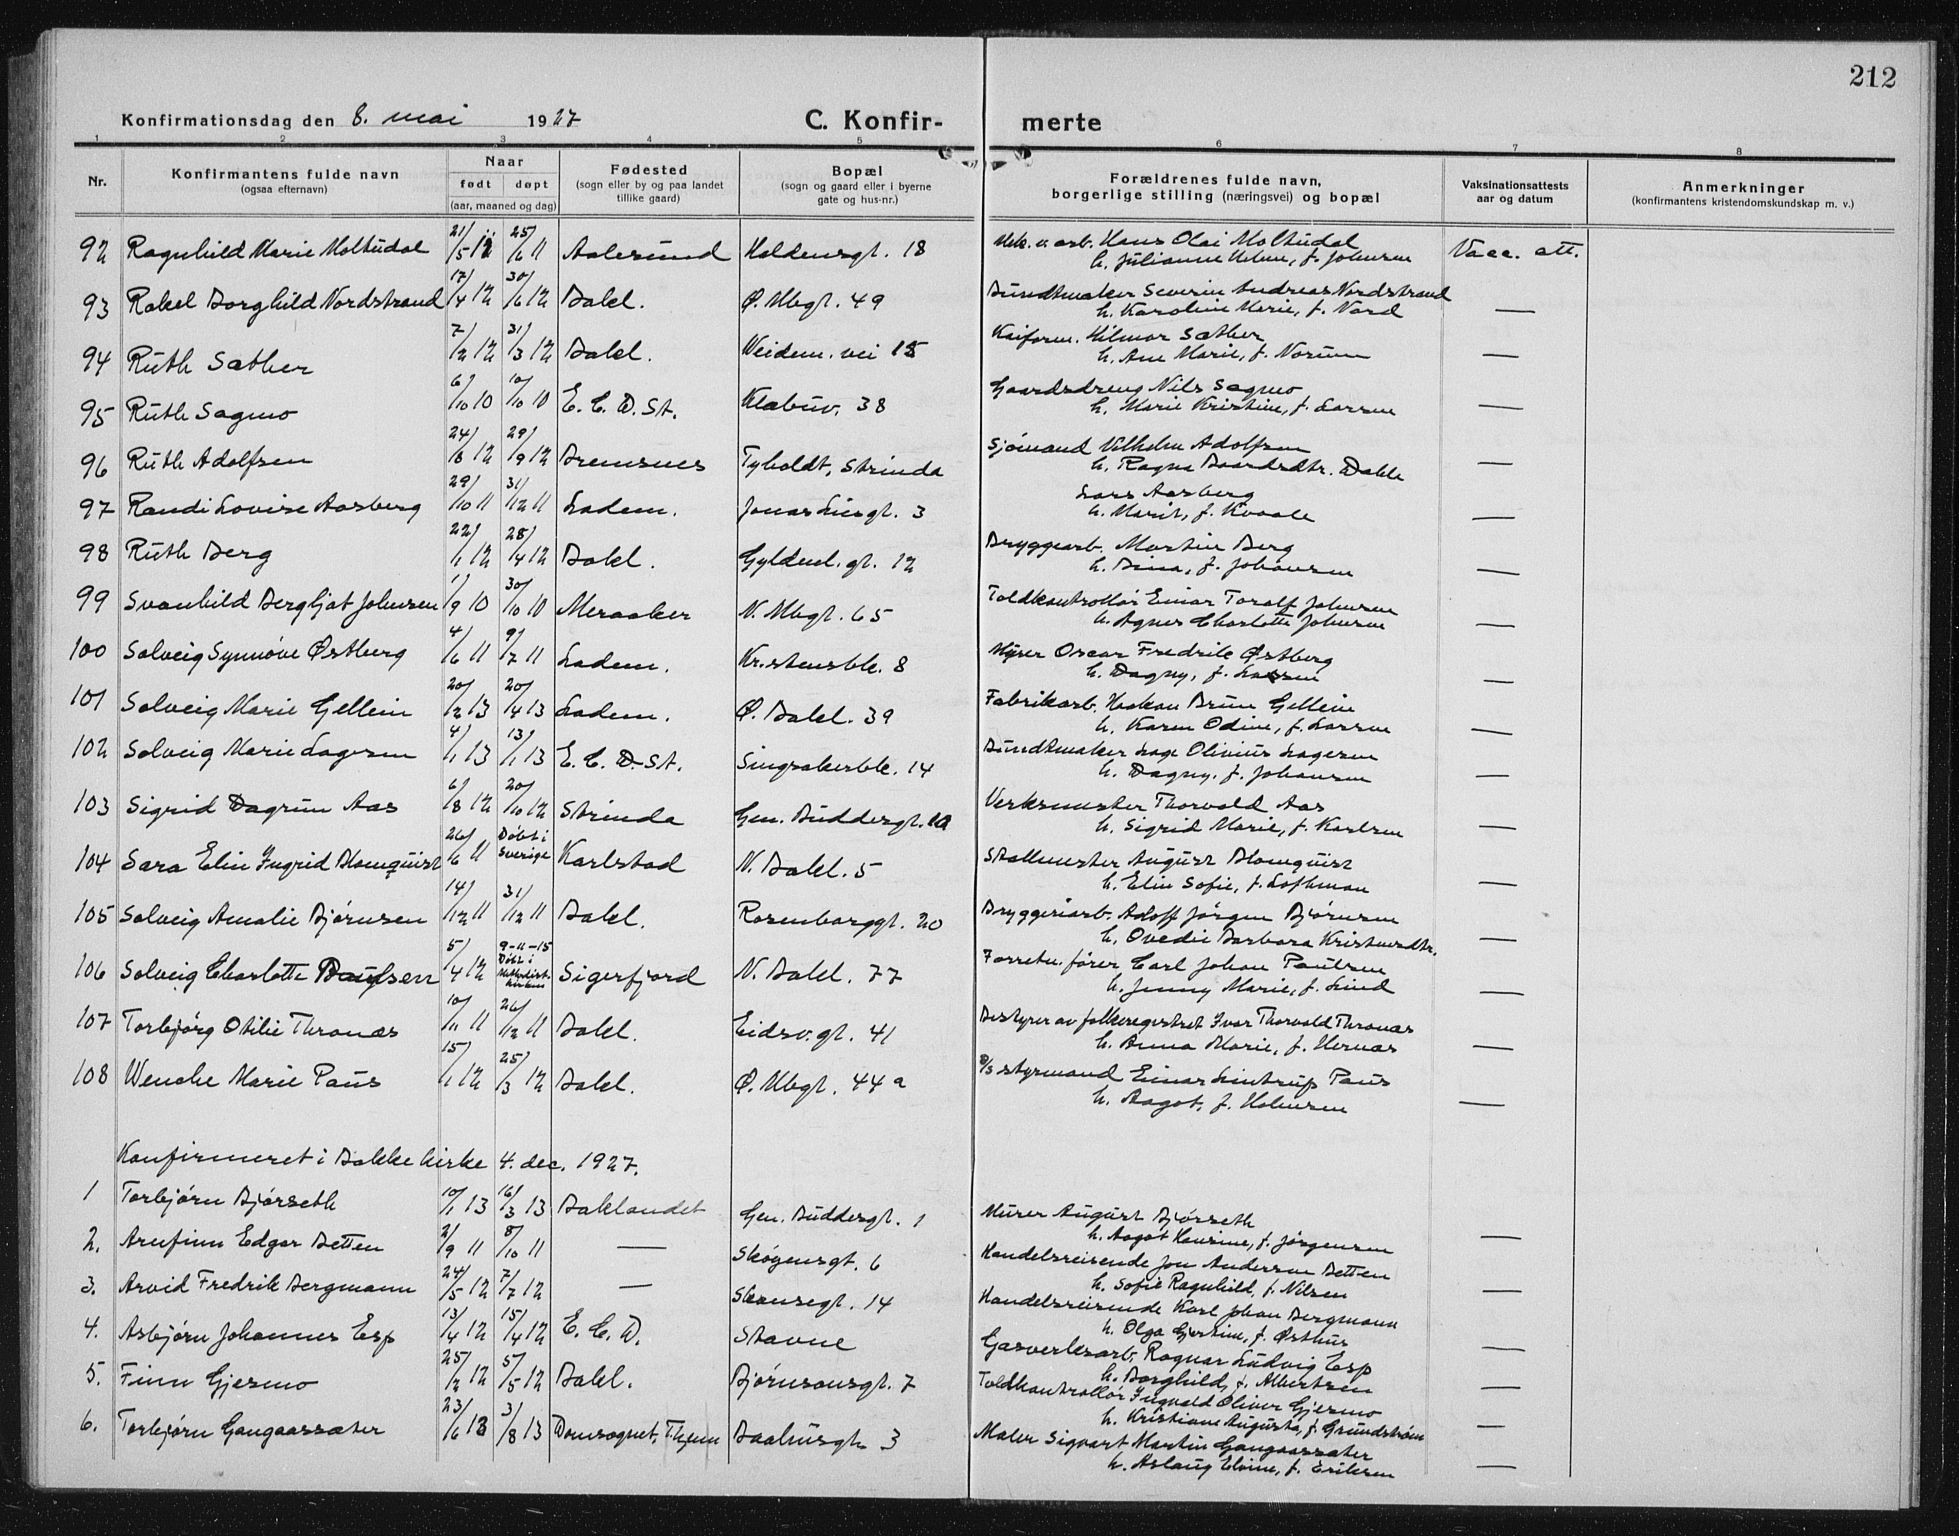 212
Konfirmationsdag den 8. mai 1927 C. Konfir- merte
1 2 3 4 5 6 7 8
Nr. Konfirmantens fulde navn (ogsaa efternavn) Naar født døpt (aar, maaned og dag) Fødested (sogn eller by og paa landet tillike gaard) Bopæl (sogn og gaard eller i byerne gate og hus-nr.) Forældrenes fulde navn, borgerlige stilling (næringsvei) og bopæl Vaksinationsattests aar og datum Anmerkninger (konfirmantens kristendomskundskap m. v.)
92 Ragnhild Marie Moltudal 21/5 12 25/6 11 Aalesund Haldensgt. 18 Mek. v. arb. Hans Olai Moltudal Vacc. att.
h. Julianne f. Johnsen
93 Rakel Borghild Nordstrand 17/4 12 30/6 12 Bakl. Ø. Mbgt. 49 Bundtmaker Severin Andreas Nordstrand
h. Karoline Marie, f. Nord —
94 Ruth Sæther 7/2 12 31/3 12 Bakl. Weidem. vei 15 Kaiform. Hilmar Sæther
h. Ane Marie, f. Norum —
95 Ruth Sagmo 6/10 10 10/10 10 E. C. D. St. Klæbuv. 38 Gaardsdreng Nils Sagmo
h. Marie Kristine, f. Larsen —
96 Ruth Adolfsen 24/8 12 29/9 12 Bremsnes Tyholdt, Strinda Sjømand Vilhelm Adolfsen
h. Ragna Baardsdtr. Dahle —
97 Randi Lovise Aasberg 29/10 11 31/12 11 Ladem. Jonas Liesgt. 3 Lars Aasberg
h. Marit, f. Kvaale —
98 Ruth Berg 22/1 12 28/4 12 Bakl. Gyldenl. gt. 12 Bryggearb. Martin Berg
h. Dina, f. Johansen —
99 Svanhild Bergljot Johnsen 1/9 10 30/10 10 Meraaker N. Mbgt. 65 Toldkontrollør Einar Toralf Johnsen
h. Agnes Charlotte Johnsen —
100 Solveig Synnøve Østberg 4/6 11 9/7 11 Ladem. Kristensbk. 8 Myrer Oscar Fredrik Østberg
h. Dagny, f. Larsen —
101 Solveig Marie Gellein 20/2 13 20/4 13 Ladem. Ø. Bakl. 39 Fabrikarb. Haakon Brun Gellein
h. Karen Odine, f. Larsen —
102 Solveig Marie Lagesen 4/1 13 13/1 13 E. C. D. St. Singsakerbk. 14 Bundtmaker Lage Olivius Lagesen
h. Dagny, f. Johansen —
103 Sigrid Dagrun Aas 6/8 12 20/10 12 Strinda Gen. Buddesgt. 10 Verksmester Thorvald Aas
h. Sigrid Marie, f. Karlsen —
104 Sara Elin Ingrid Blomquist 26/6 11 Døbt i Sverige Karlstad N. Bakl. 5 Stallmester August Blomquist
h. Elin Sofie, f. Lofthman —
105 Solveig Amalie Bjørnsen 14/12 11 31/12 11 Bakl. Rosenborggt. 20 Bryggeriarb. Adolf Jørgen Bjørnsen
h. Ovedie Barbara Kristensdtr. —
106 Solveig Charlotte Paulsen 5/4 12 9-11-15 Døbt i Methodistkirken Sigerfjord N. Bakl. 77 Forretn. fører Carl Johan Paulsen
h. Jenny Marie, f. Lind —
107 Torbjørg Otilie Thronæs 10/11 11 26/12 11 Bakl. Eidsv. gt. 41 Bestyrer av folkeregistret Ivar Thorvald Thronæs
h. Anna Marie, f. Hernæs —
108 Wenche Marie Paus 15/1 12 25/3 12 Bakl. Ø. Mbgt. 44 a D/S styrmand Einar Lintrup Paus
h. Aagot, f. Holmsen —
Konfirmeret i Bakke kirke 4. dec. 1927.
1 Torbjørn Bjørseth 10/1 13 16/3 13 Baklandet Gen. Buddesgt. 1 Murer August Bjørseth
h. Aagot Henrine, f. Jørgensen —
2. Arnfinn Edgar Betten 2/9 11 8/10 11 — Skøyensgt. 6 Handelsreisende Jon Andersen Betten
h. Sofie Ragnhild, f. Nilsen —
3. Arvid Fredrik Bergmann 24/5 12 7/7 12 — Skansegt. 14 Handelsreisende Karl Johan Bergmann
h. Olga Gjertine, f. Østhus —
4. Asbjørn Johannes Esp 13/4 12 15/4 12 E. C. D. Stavne Gasverksarb. Ragnar Ludvig Esp
h. Borghild, f. Albertsen —
5. Finn Gjermo 25/2 12 5/5 12 Bakl. Bjørnsonsgt. 7 Toldkontrollør Ingvald Oliver Gjermo
h. Kristiane Augusta, f. Grundstrøm —
6. Torbjørn Gangaassæter 23/6 13 3/8 13 Domsognet, Thjem Baahusgt. 3 Maler Sigvart Martin Gangaassæter
h. Aslaug Elvine, f. Eriksen —